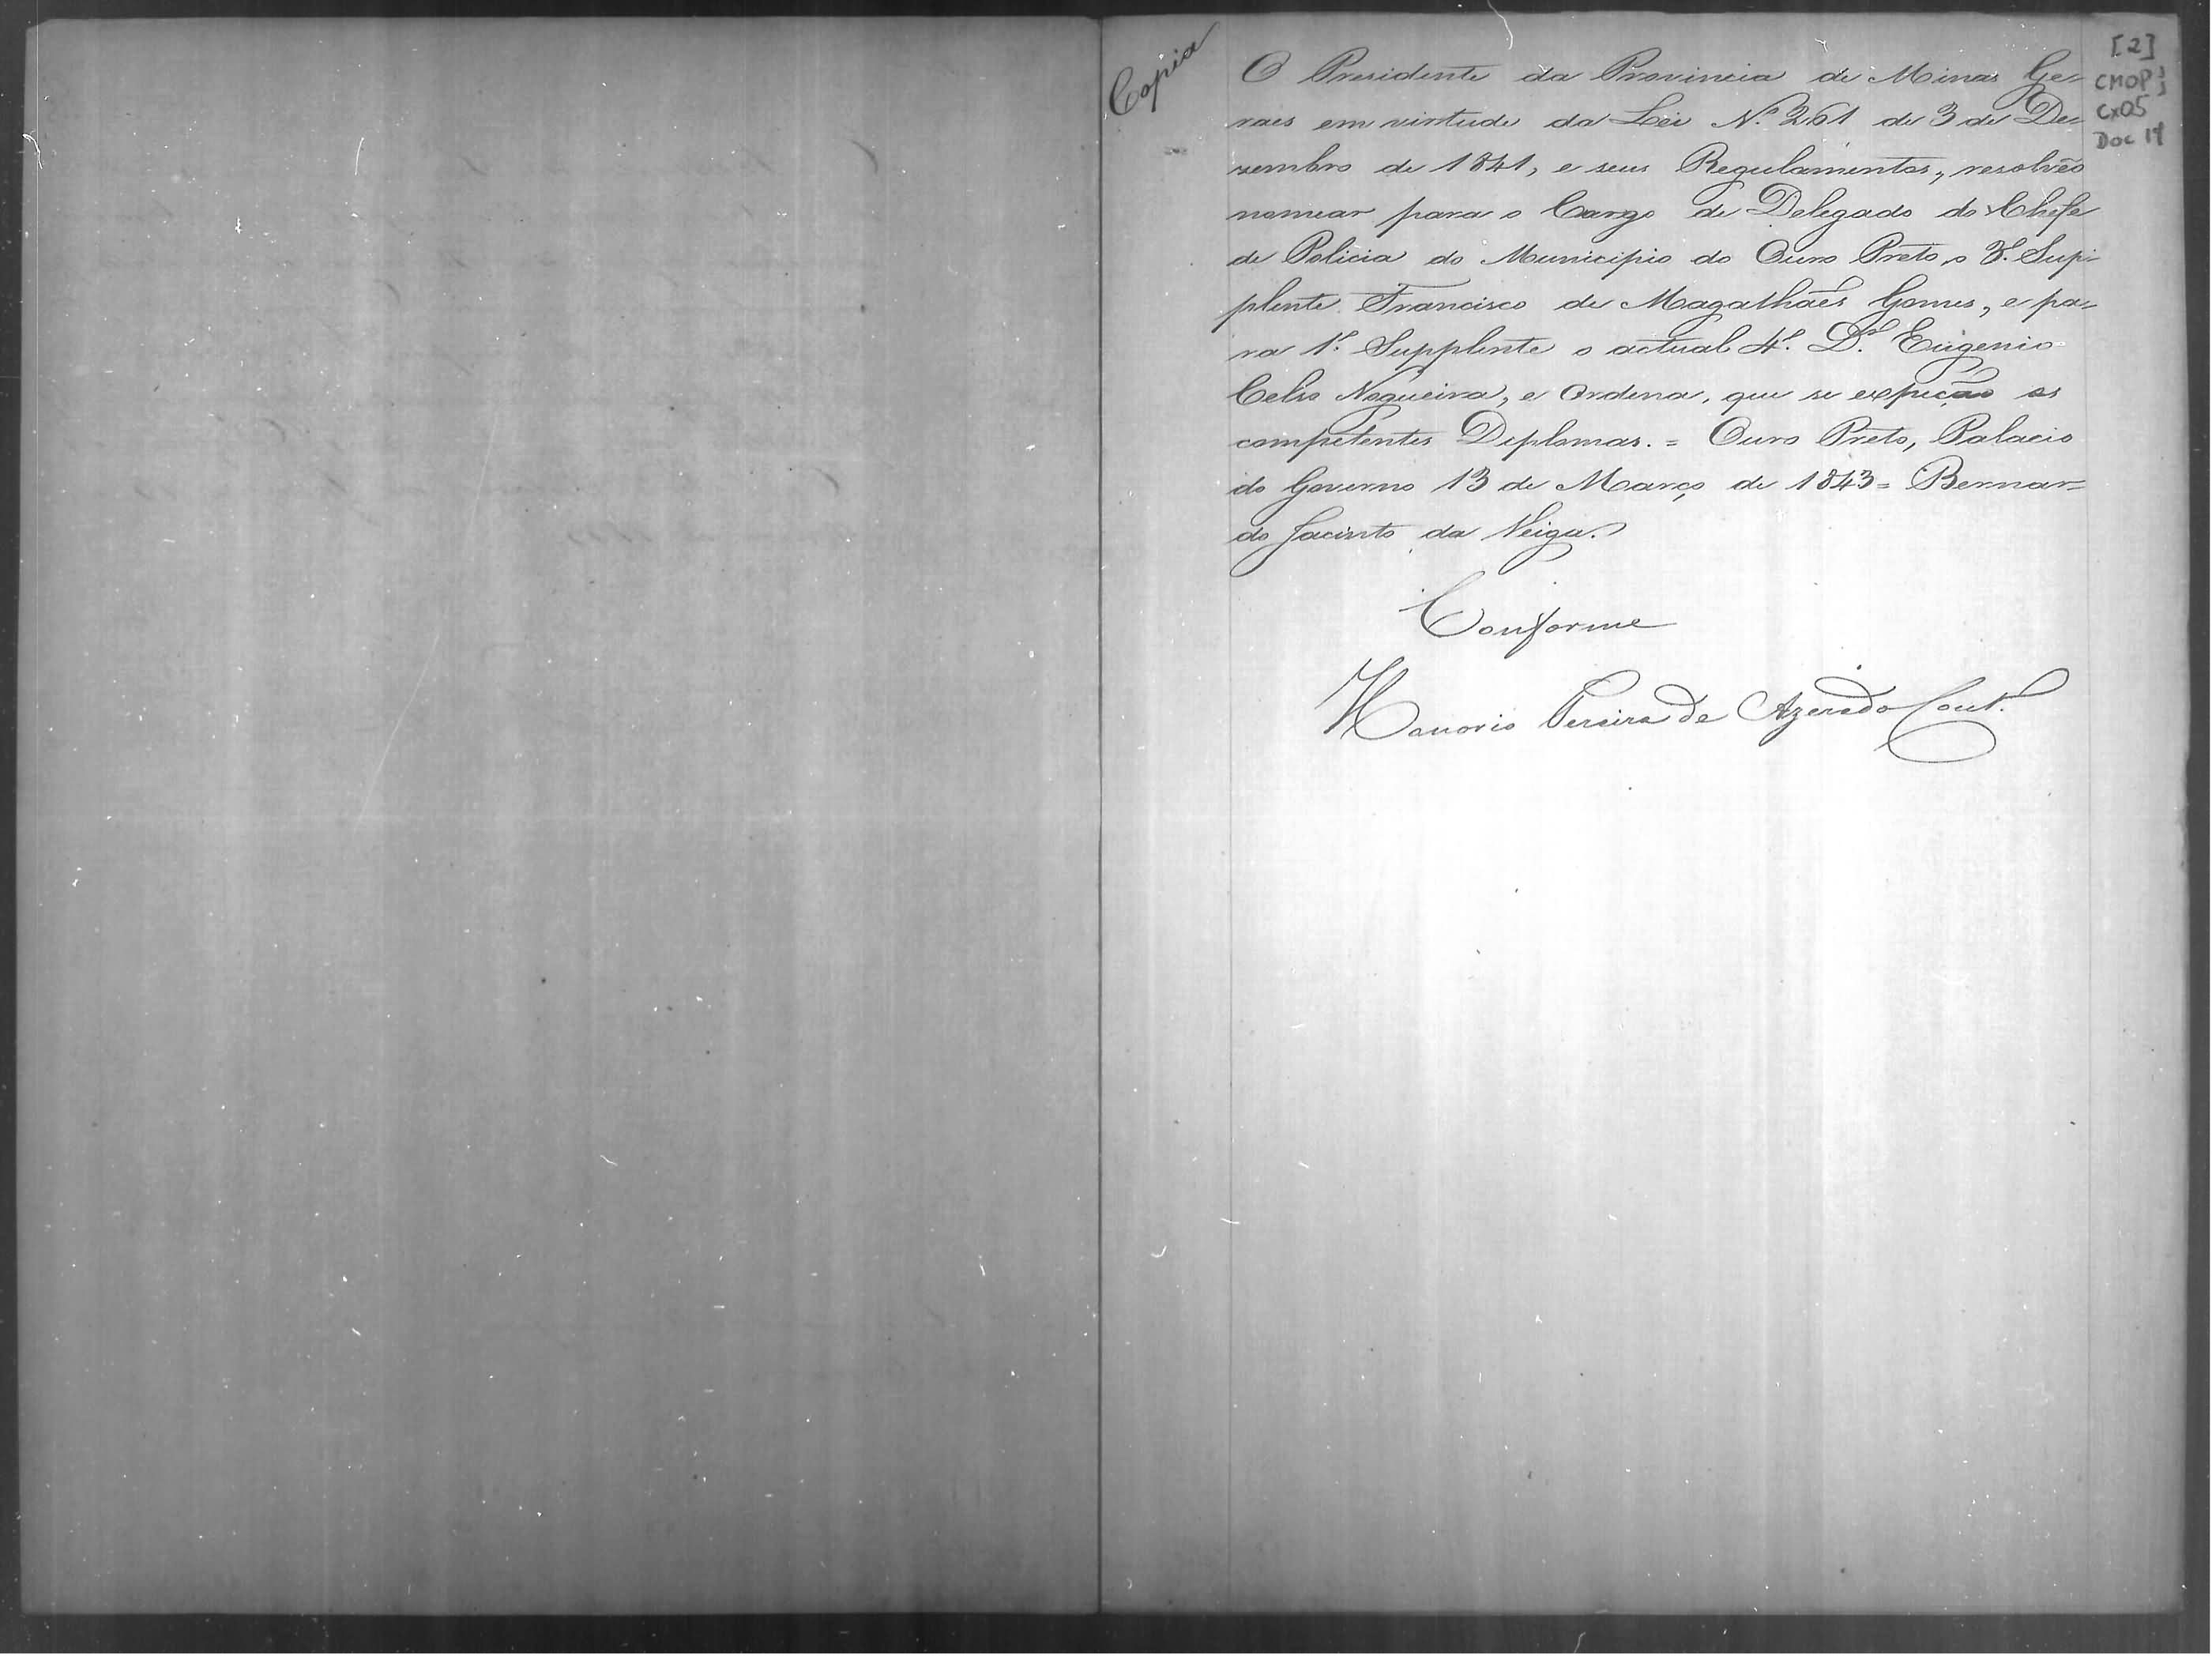 Copia
[2]
CMOP
Cx05
Doc 14
O Presidente da Provincia de Minas Ge-
raes em virtude da Lei N.º 261 de 3 de De-
zembro de 1841, e seus Regulamentos, resolvêo
nomear para o Cargo de Delegado do Chefe
de Policia do Municipio do Ouro Preto, o 3.º Sup-
plente Francisco de Magalhães Gomes, e pa-
ra 1.º Supplente o actual 4.º D.or Eugenio
Celso Nogueira, e Ordena, que se expeção os
competentes Diplomas. = Ouro Preto, Palacio
do Governo 13 de Março de 1843 = Bernar=
do Jacinto da Veiga.
Conforme
Honorio Pereira de Azeredo Cout.º